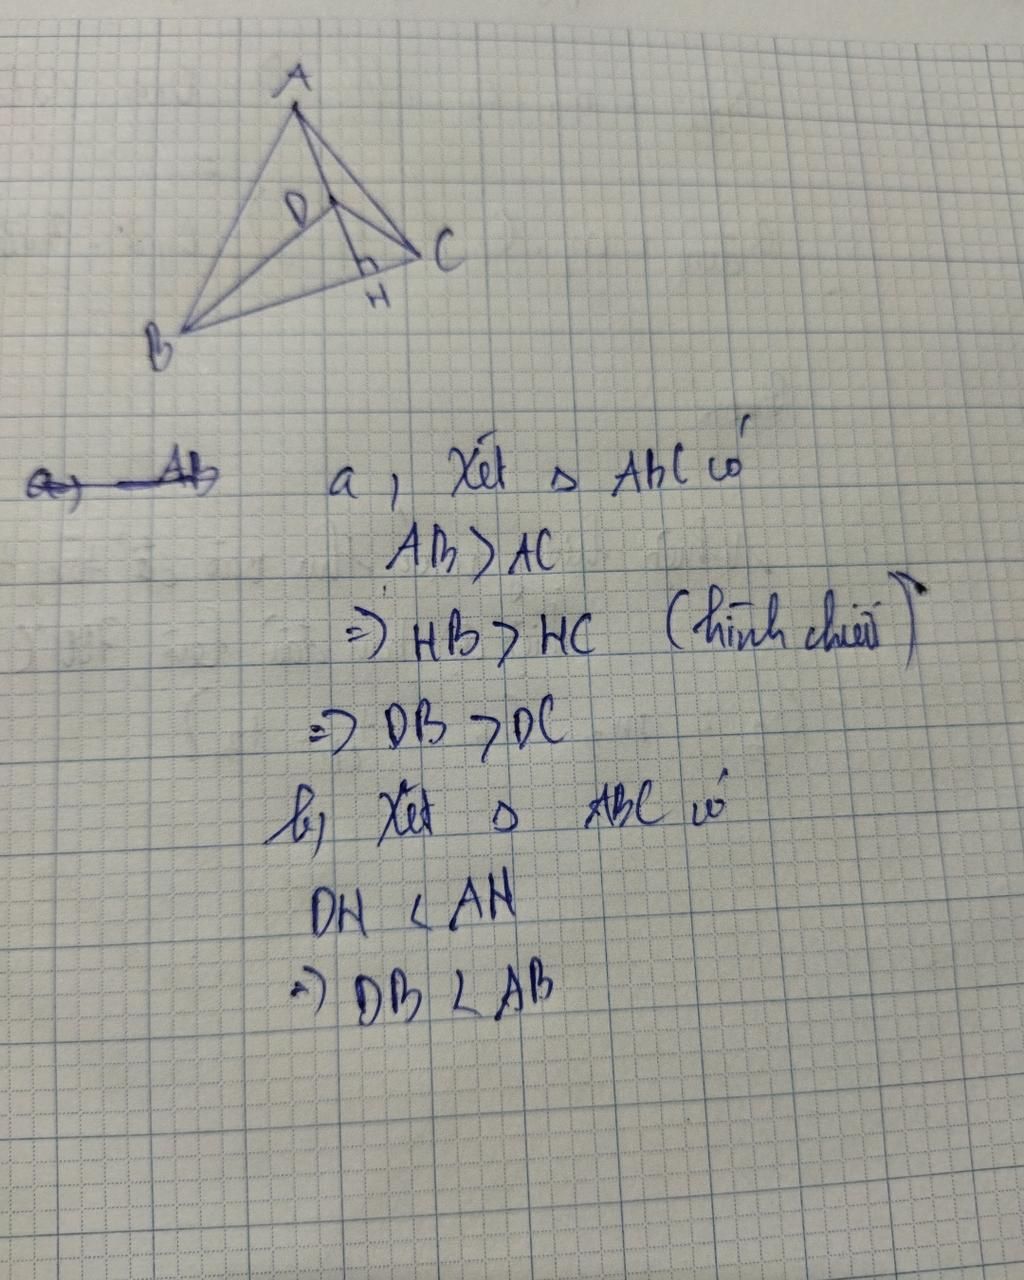 A
D
C
H
B
a, Xét Δ ABC có
AB > AC
=> HB > HC (hình chiếu)
=> DB > DC
b, Xét Δ ABC có
DH < AH
=> DB < AB